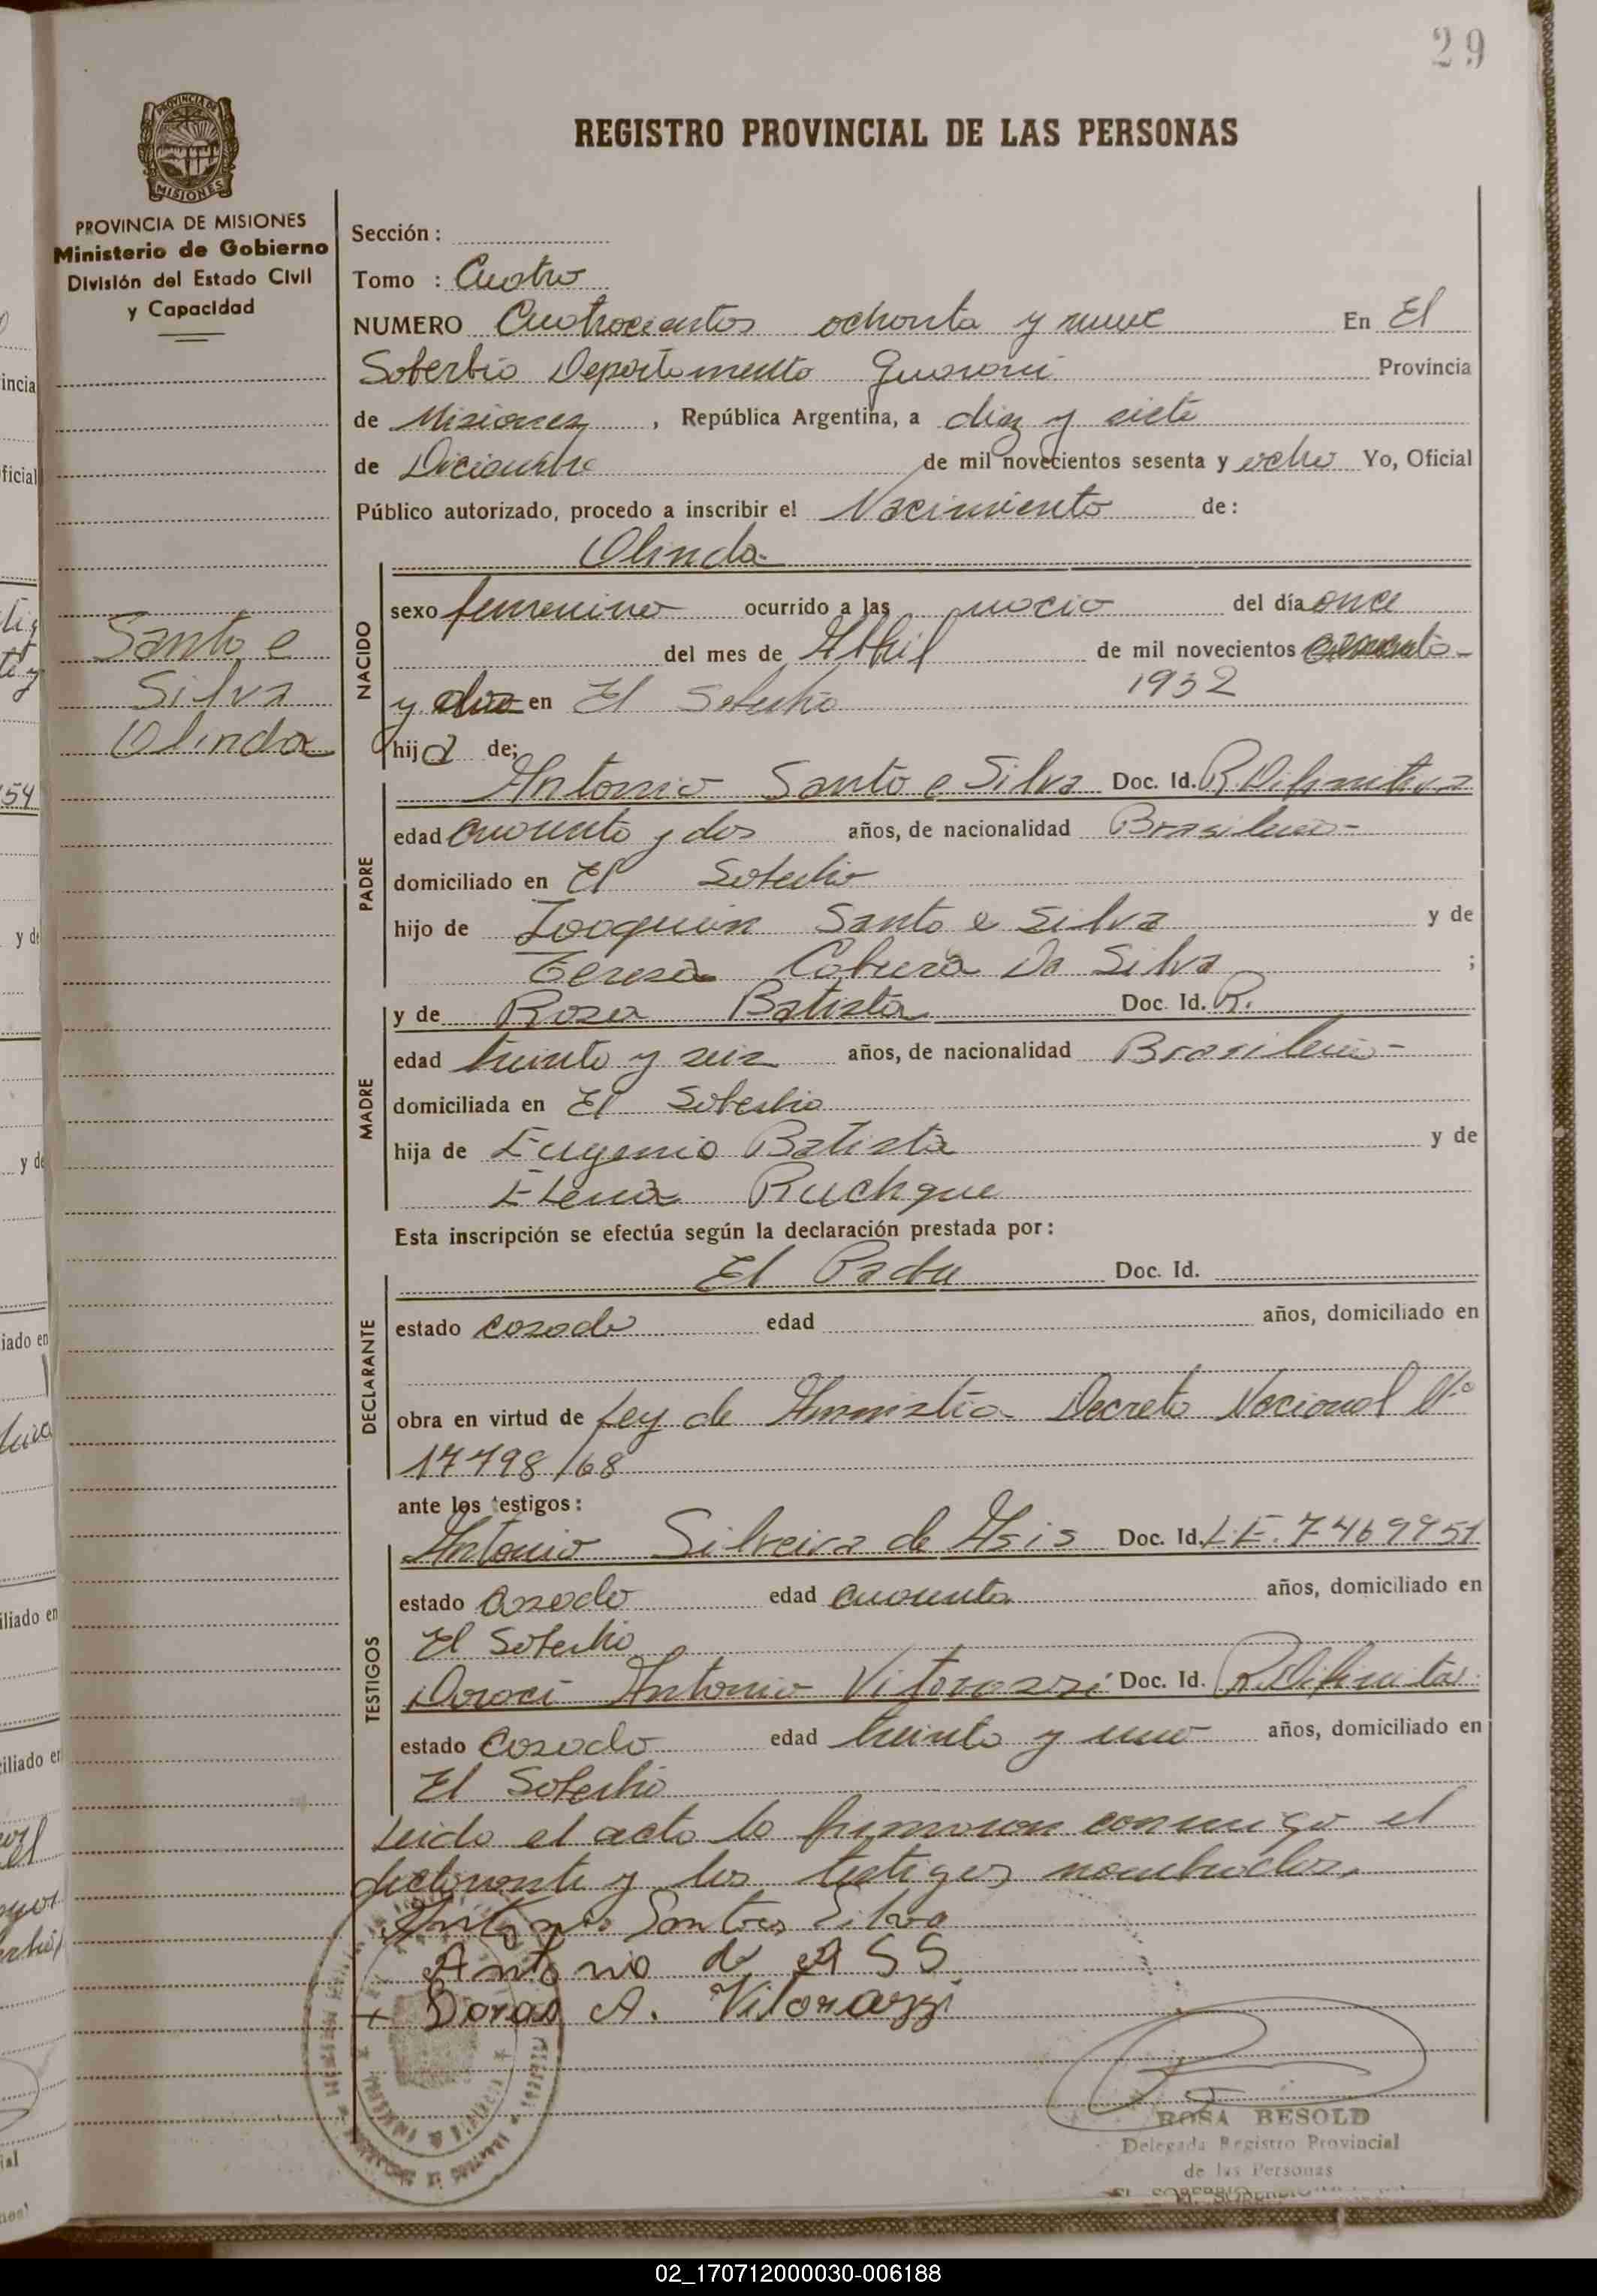 29
REGISTRO PROVINCIAL DE LAS PERSONAS
PROVINCIA DE MISIONES
PROVINCIA DE MISIONES
Ministerio de Gobierno
División del Estado Civil
y Capacidad
Santo e
Silva
Olinda
Sección :
Tomo : Cuatro
NUMERO Cuatrocientos ochenta y nueve En El
Soberbio Departamento Guarani Provincia
de Misiones , República Argentina, a diez y siete
de Diciembre de mil novecientos sesenta y ocho Yo, Oficial
Público autorizado, procedo a inscribir el Nacimiento de:
Olinda
NACIDO
sexo femenino ocurrido a las del día once
del mes de Abril de mil novecientos
y en El Soberbio 1952
hija de;
PADRE
Antonio Santo e Silva Doc. Id. R. Difinitiva
edad cuarenta y dos años, de nacionalidad Brasilera
domiciliado en El Soberbio
hijo de Joaquin Santo e Silva y de
Teresa Da Silva ;
MADRE
y de Rosa Batista Doc. Id. R.
edad treinta y seis años, de nacionalidad Brasilera
domiciliada en El Soberbio
hija de Eugenio Batista y de
Elena Ruchque
Esta inscripción se efectúa según la declaración prestada por:
DECLARANTE
El Padre Doc. Id.
estado casado edad años, domiciliado en
obra en virtud de Ley de Amnistia Decreto Nacional Nº
17798/68
ante los testigos:
TESTIGOS
Antonio Silveira de Asis Doc. Id. L.E. 7469951
estado casado edad cuarenta años, domiciliado en
El Soberbio
Doraci Antonio Vitorazzi Doc. Id. R. Difinitiva
estado casado edad treinta y uno años, domiciliado en
El Soberbio
Leida el acta la firmaron conmigo el
declarante y los testigos nombrados.
Antonio Santos Silva
Antonio de ASS
A. Vitorazzi
ROSA BESOLD
Delegada Registro Provincial
de las Personas
02_170712000030-006188